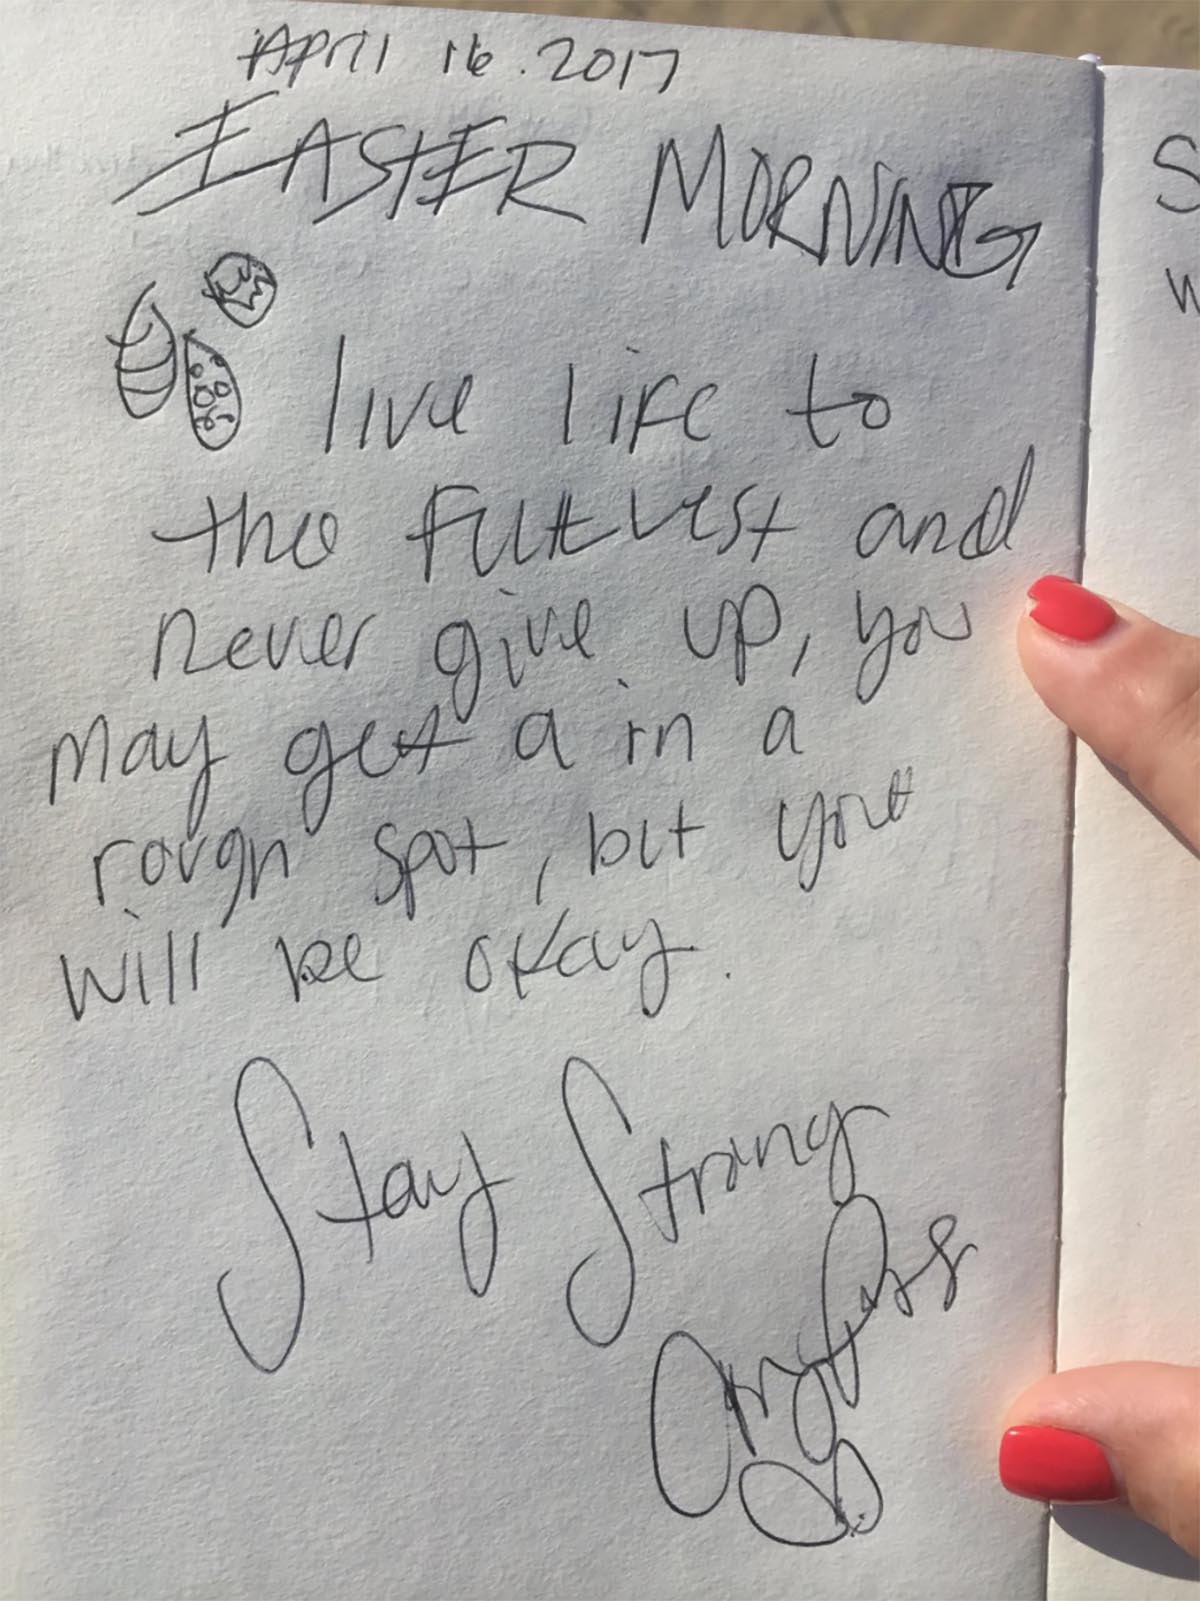 APril 16.2017
EASTER MORNING
live life to
the fullest and
never give up, you
may get a in a
rough spot, but you
will be okay.
Stay Strong
S
w